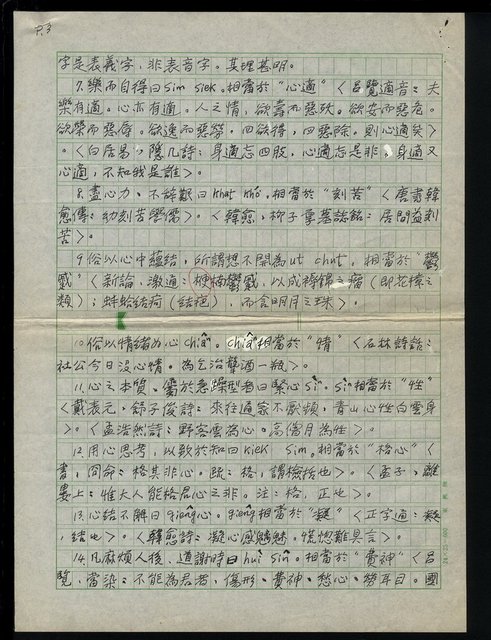 P.3
字是表義字，非表音字。其理甚明。
7.樂而自得曰sim siek。相當於“心適”〈呂覽適音：夫
樂有適。心亦有適。人之情，欲壽而惡殀。欲安而惡危。
欲榮而惡辱。欲逸而惡勞。四欲得，四惡除。則心適矣〉
。〈白居易，隱几詩：身適忘四肢，心適忘是非，身適又
心適，不知我是誰〉。
8.盡心力、不辭艱曰khat khó。相當於“刻苦”〈唐書韓
愈傳：幼刻苦學儒〉。〈韓愈，柳子厚墓誌銘：居閒益刻
苦〉。
9.俗以心中蘊結，所謂想不開為ut chut，相當於“鬱
蹙”〈新論，激通：梗楠鬱蹙，以成縟錦之瘤（即花樟之
類）；蚌蛤結疴（結疤），而含明月之珠〉。
10.俗以情緒如心chiâⁿ。chiâⁿ相當於“情”〈石林詩話：
社公今日沒心情。為乞治聾酒一瓶〉。
11.心之本質、屬於急躁型者曰緊心sìⁿ。sìⁿ相當於“性”
〈戴表元，舒子俊詩：來往通家不厭頻，青山心性白雲身
〉。〈孟浩然詩：野客雲為心。高僧月為性〉。
12.用心思考，以致於知曰kiek sim。相當於“格心”〈
書，冏命：格其非心。疏：格，謂檢括也〉。〈孟子，離
婁上：惟大人能格君心之非。注：格，正也〉。
13.心結不解曰gieng心。gieng相當於“凝”〈正字通：凝
，結也〉。〈韓愈詩：凝心感魑魅。慌惚難具言〉。
14.凡麻煩人後、道謝時曰huì sîn。相當於“費神”〈呂
覽，當染：不能為君者，傷形、費神、愁心、勞耳目。國